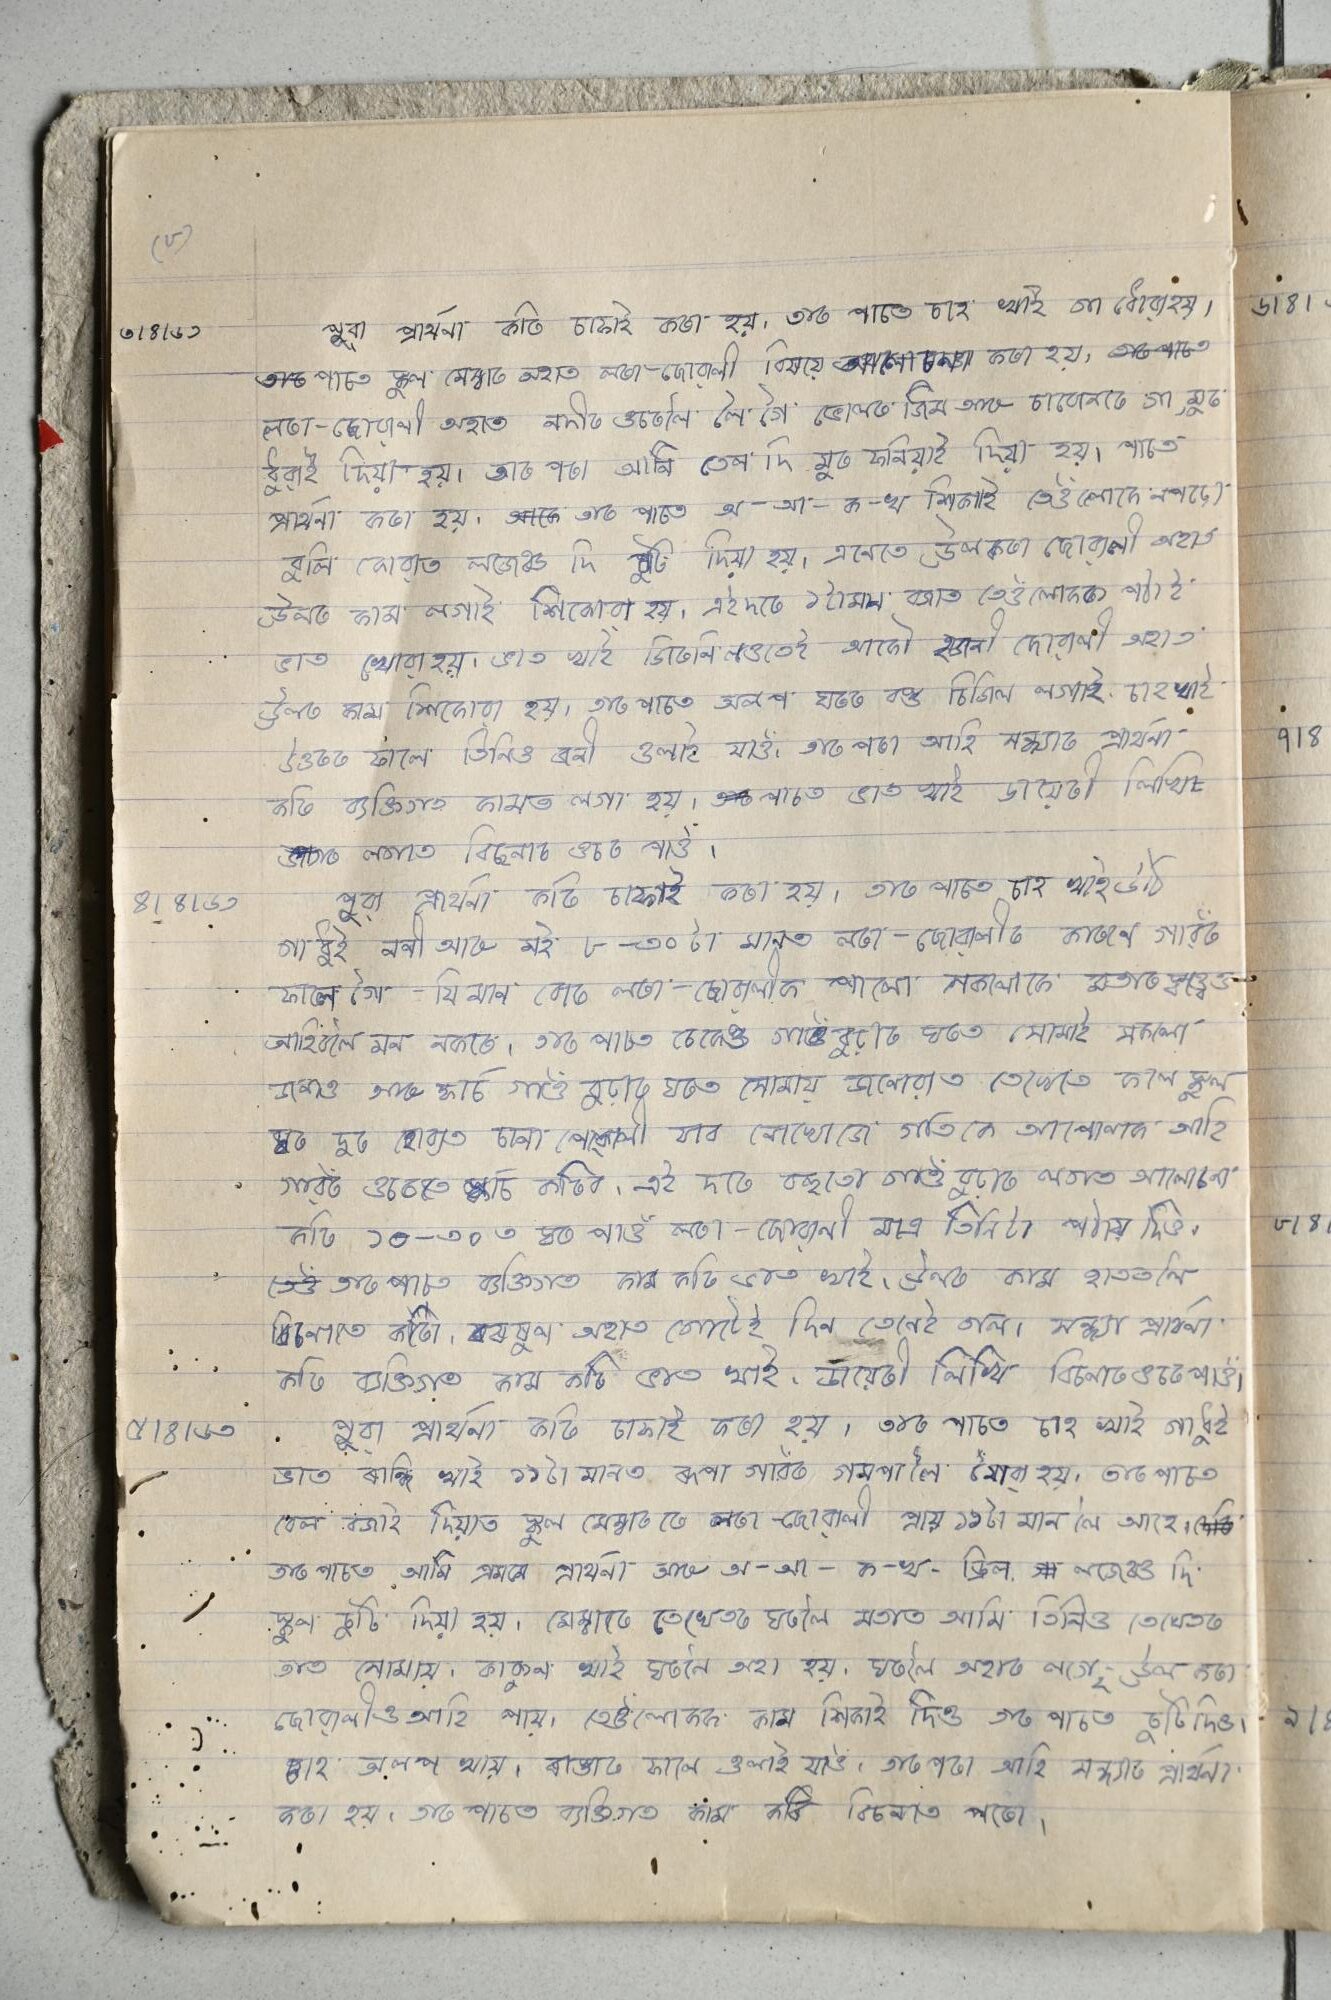 (৮)
৩।৪।৬৩ পুৱা প্ৰাৰ্থনা কৰি চাফাই কৰা হয়, তাৰ পাচত চাহ খাই গা ধোৱা হয়।
তাৰ পাচত স্কুল মেম্বাৰ অহাত লৰা-ছোৱালী বিষয়ে আলোচনা কৰা হয়, তাৰ পাচত
লৰা-ছোৱালী অহাত নদীৰ ওচৰলৈ লৈ গৈ আৰু চাবোনেৰে গা মূৰ
ধুৱাই দিয়া হয়। তাৰ পৰা আনি তেল দি মূৰ ফনিয়াই দিয়া হয়। পাচত
প্ৰাৰ্থনা কৰা হয়, তাৰ পাচত অ-আ-ক-খ শিকাই তেওঁলোকে নপঢ়ো
বুলি কোৱাত লজেঞ্চ দি ছুটি দিয়া হয়, এনেতে ছোৱালী অহাত
উলৰ কাম লগাই শিকোৱা হয়, এইদৰে ১টামান বজাত তেওঁলোকক পঠাই
ভাত খোৱা হয়, ভাত খাই জিৰনি লওতেই আকৌ ছোৱালী অহাত
উলৰ কাম শিকোৱা হয়, তাৰ পাচত অলপ ঘৰৰ বস্তু চিজিল লগাই চাহ খাই
ফালে তিনিও ওলাই যাওঁ, তাৰ পৰা আহি সন্ধ্যাৰ প্ৰাৰ্থনা
কৰি ব্যক্তিগত কামত লগা হয়, পাচত ভাত খাই ডায়েৰী লিখি
লগাত বিছনাৰ ওচৰ পাওঁ।
৪।৪।৬৩ পুৱা প্ৰাৰ্থনা কৰি চাফাই কৰা হয়, তাৰ পাচত চাহ খাই উঠি
গা ধুই ননী আৰু মই ৮-৩০ টা মানত লৰা-ছোৱালীৰ কাৰণে গাৱঁৰ
ফালে গৈ যিমান বোৰ লৰা-ছোৱালীক পালো সকলোকে
আহিবলৈ মন নকৰে, তাৰ পাচত গাওঁবুঢ়াৰ ঘৰত সোমাই সকলো
জনাও আৰু গাওঁ বুঢ়াৰ ঘৰত সোমায় জনোৱাত তেখেতে কলে স্কুল
ঘৰ দুৰ হোৱাত যাব নোখোজে গতিকে আপোনাক আহি
গাৱঁৰ ওচৰতে কৰিব, এই দৰে বহুতো গাওঁ বুঢ়াৰ লগত আলোচনা
কৰি ১০-৩০ ত ঘৰ পাওঁ লৰা-ছোৱালী মাত্ৰ তিনিটা পঠায় দিও,
তাৰ পাচত ব্যক্তিগত কাম কৰি ভাত খাই, উলৰ কাম হাততলি
বিচনাতে অহাত গোটেই দিন তেনেই গল। সন্ধ্যা প্ৰাৰ্থনা
কৰি ব্যক্তিগত কাম কৰি ভাত খাই, ডায়েৰী লিখি বিচনাৰ ওচৰ পাওঁ।
৫।৪।৬৩ পুৱা প্ৰাৰ্থনা কৰি চাফাই কৰা হয়, তাৰ পাচত চাহ খাই গা ধুই
ভাত ৰান্ধি খাই ১১টা মানত ৰূপা গাৱঁৰ হয়, তাৰ পাচত
বেল বজাই দিয়াত স্কুল মেম্বাৰে লৰা-ছোৱালী প্ৰায় ১১টা মান লৈ আহে,
তাৰ পাচত আমি প্ৰথমে প্ৰাৰ্থনা আৰু অ-আ-ক-খ-ড্ৰিল, লজেঞ্চ দি
স্কুল ছুটি দিয়া হয়, মেম্বাৰে তেখেতৰ ঘৰলৈ মতাত আমি তিনিও তেখেতৰ
তাত সোমায়, খাই ঘৰলৈ অহা হয়, ঘৰলৈ অহাৰ লগে উল কৰা
ছোৱালীও আহি পায়, তেওঁলোকক কাম শিকাই দিও তাৰ পাচত ছুটি দিও,
চাহ অলপ খায়, ৰাস্তাৰ ফালে ওলাই যাওঁ, তাৰ পৰা আহি সন্ধ্যাৰ প্ৰাৰ্থনা
কৰা হয়, তাৰ পাচত ব্যক্তিগত কাম কৰি বিচনাত পৰো,
৬।৪।
৭।৪
৮।৪।
৯।৪